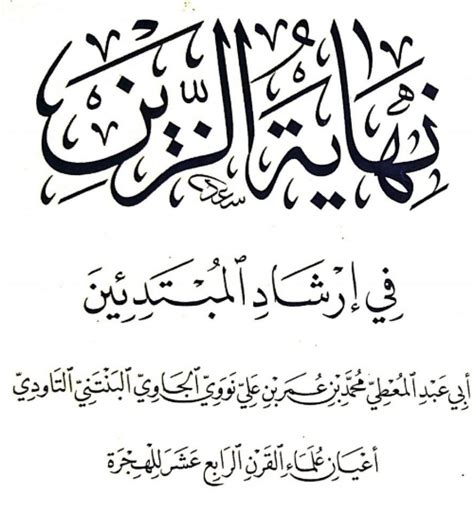 نِهَايَةُ الزَّيْنِ
سعد
فِي إِرْشَادِ المُبْتَدِئِينَ
أَبِي عَبْدِ المُعْطِيّ مُحَمَّدِ بْنِ عُمَرَ بْنِ عَلِيّ نَوَوِي الجَاوِيّ البَنْتَنِيّ التَّاودِيّ
أَعْيَانِ عُلَمَاءِ القَرْنِ الرَابِعِ عَشَرَ لِلْهِجْرَةِ